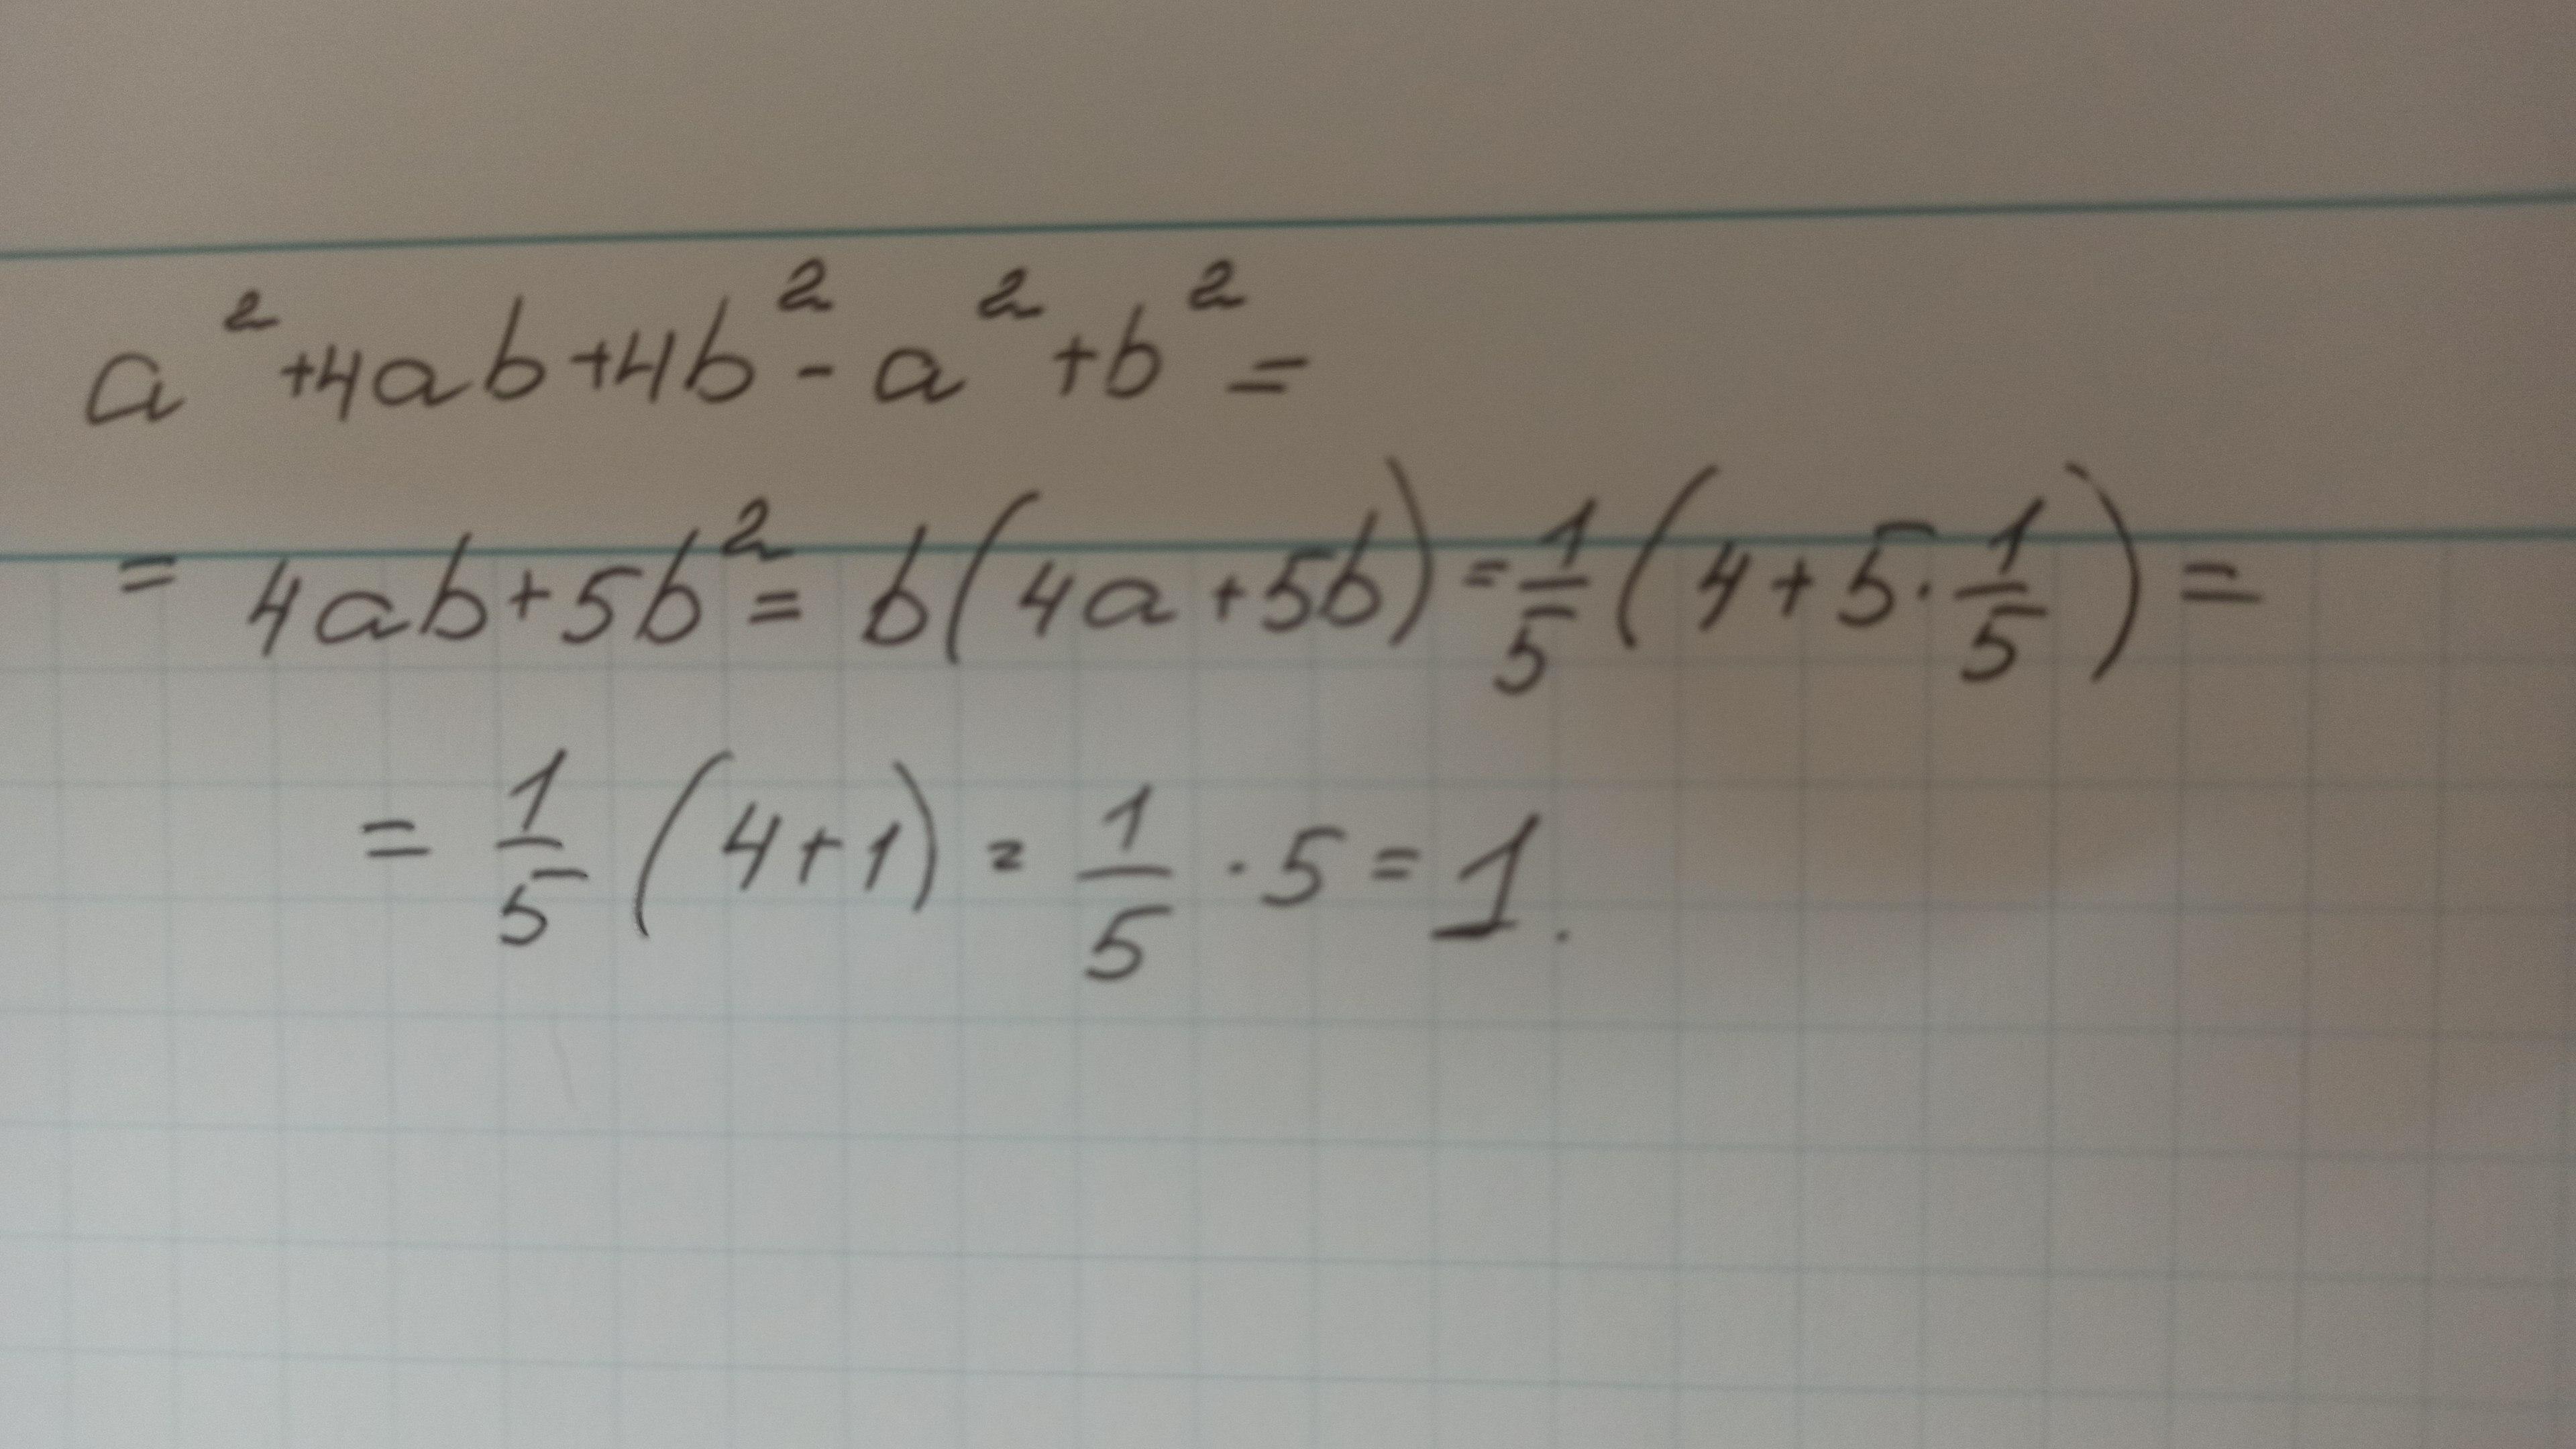 a² + 4ab + 4b² - a² + b² =
= 4ab + 5b² = b(4a + 5b) = 1/5 (4 + 5 · 1/5) =
= 1/5 (4 + 1) = 1/5 · 5 = 1.